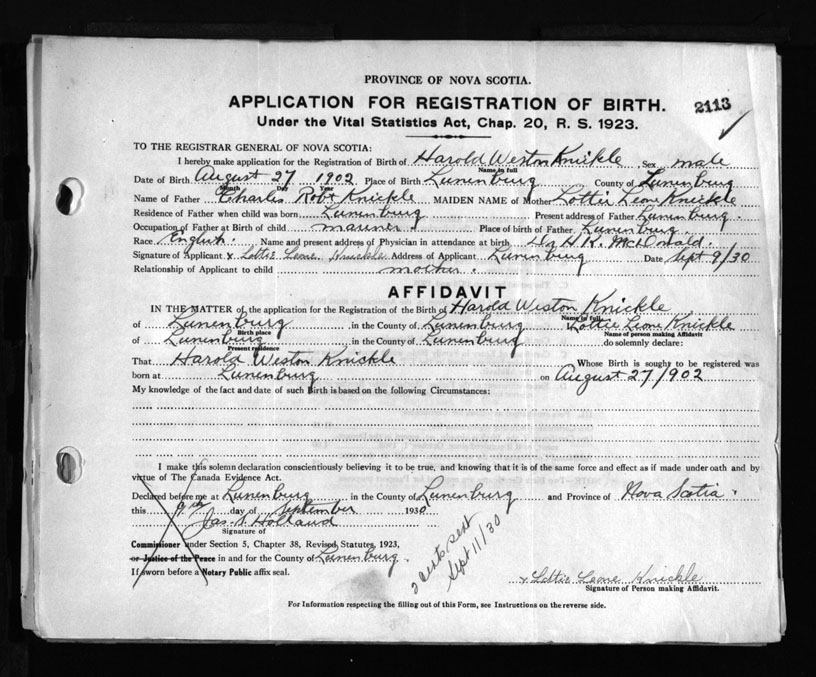 PROVINCE OF NOVA SCOTIA.
APPLICATION FOR REGISTRATION OF BIRTH.
2113
Under the Vital Statistics Act, Chap. 20, R. S. 1923.
TO THE REGISTRAR GENERAL OF NOVA SCOTIA:
I hereby make application for the Registration of Birth of Harold Weston Knickle Sex male
Name in full
Date of Birth August 27 1902 Place of Birth Lunenburg County of Lunenburg
Month Day Year
Name of Father Charles Robt Knickle MAIDEN NAME of Mother Lottie Leone Knickle
Residence of Father when child was born Lunenburg Present address of Father Lunenburg.
Occupation of Father at Birth of child mariner Place of birth of Father Lunenburg.
Race English. Name and present address of Physician in attendance at birth Dr H. K. McDonald.
Signature of Applicant x Lottie Leone Knickle Address of Applicant Lunenburg Date Sept 9/30
Relationship of Applicant to child mother.
AFFIDAVIT
IN THE MATTER of the application for the Registration of the Birth of Harold Weston Knickle
Name in full
of Lunenburg in the County of Lunenburg Lottie Leone Knickle
Birth place Name of person making Affidavit
of Lunenburg in the County of Lunenburg do solemnly declare:
Present residence
That Harold Weston Knickle Whose Birth is sought to be registered was
born at Lunenburg on August 27/1902
My knowledge of the fact and date of such Birth is based on the following Circumstances:
I make this solemn declaration conscientiously believing it to be true, and knowing that it is of the same force and effect as if made under oath and by
virtue of The Canada Evidence Act.
Declared before me at Lunenburg in the County of Lunenburg and Province of Nova Scotia.
this 9th day of September 1930
Jas. Holland
Signature of
Commissioner under Section 5, Chapter 38, Revised Statutes, 1923,
or Justice of the Peace in and for the County of Lunenburg.
If sworn before a Notary Public affix seal.
2 certs sent
Sept 11/30
x Lottie Leone Knickle
Signature of Person making Affidavit.
For Information respecting the filling out of this Form, see Instructions on the reverse side.